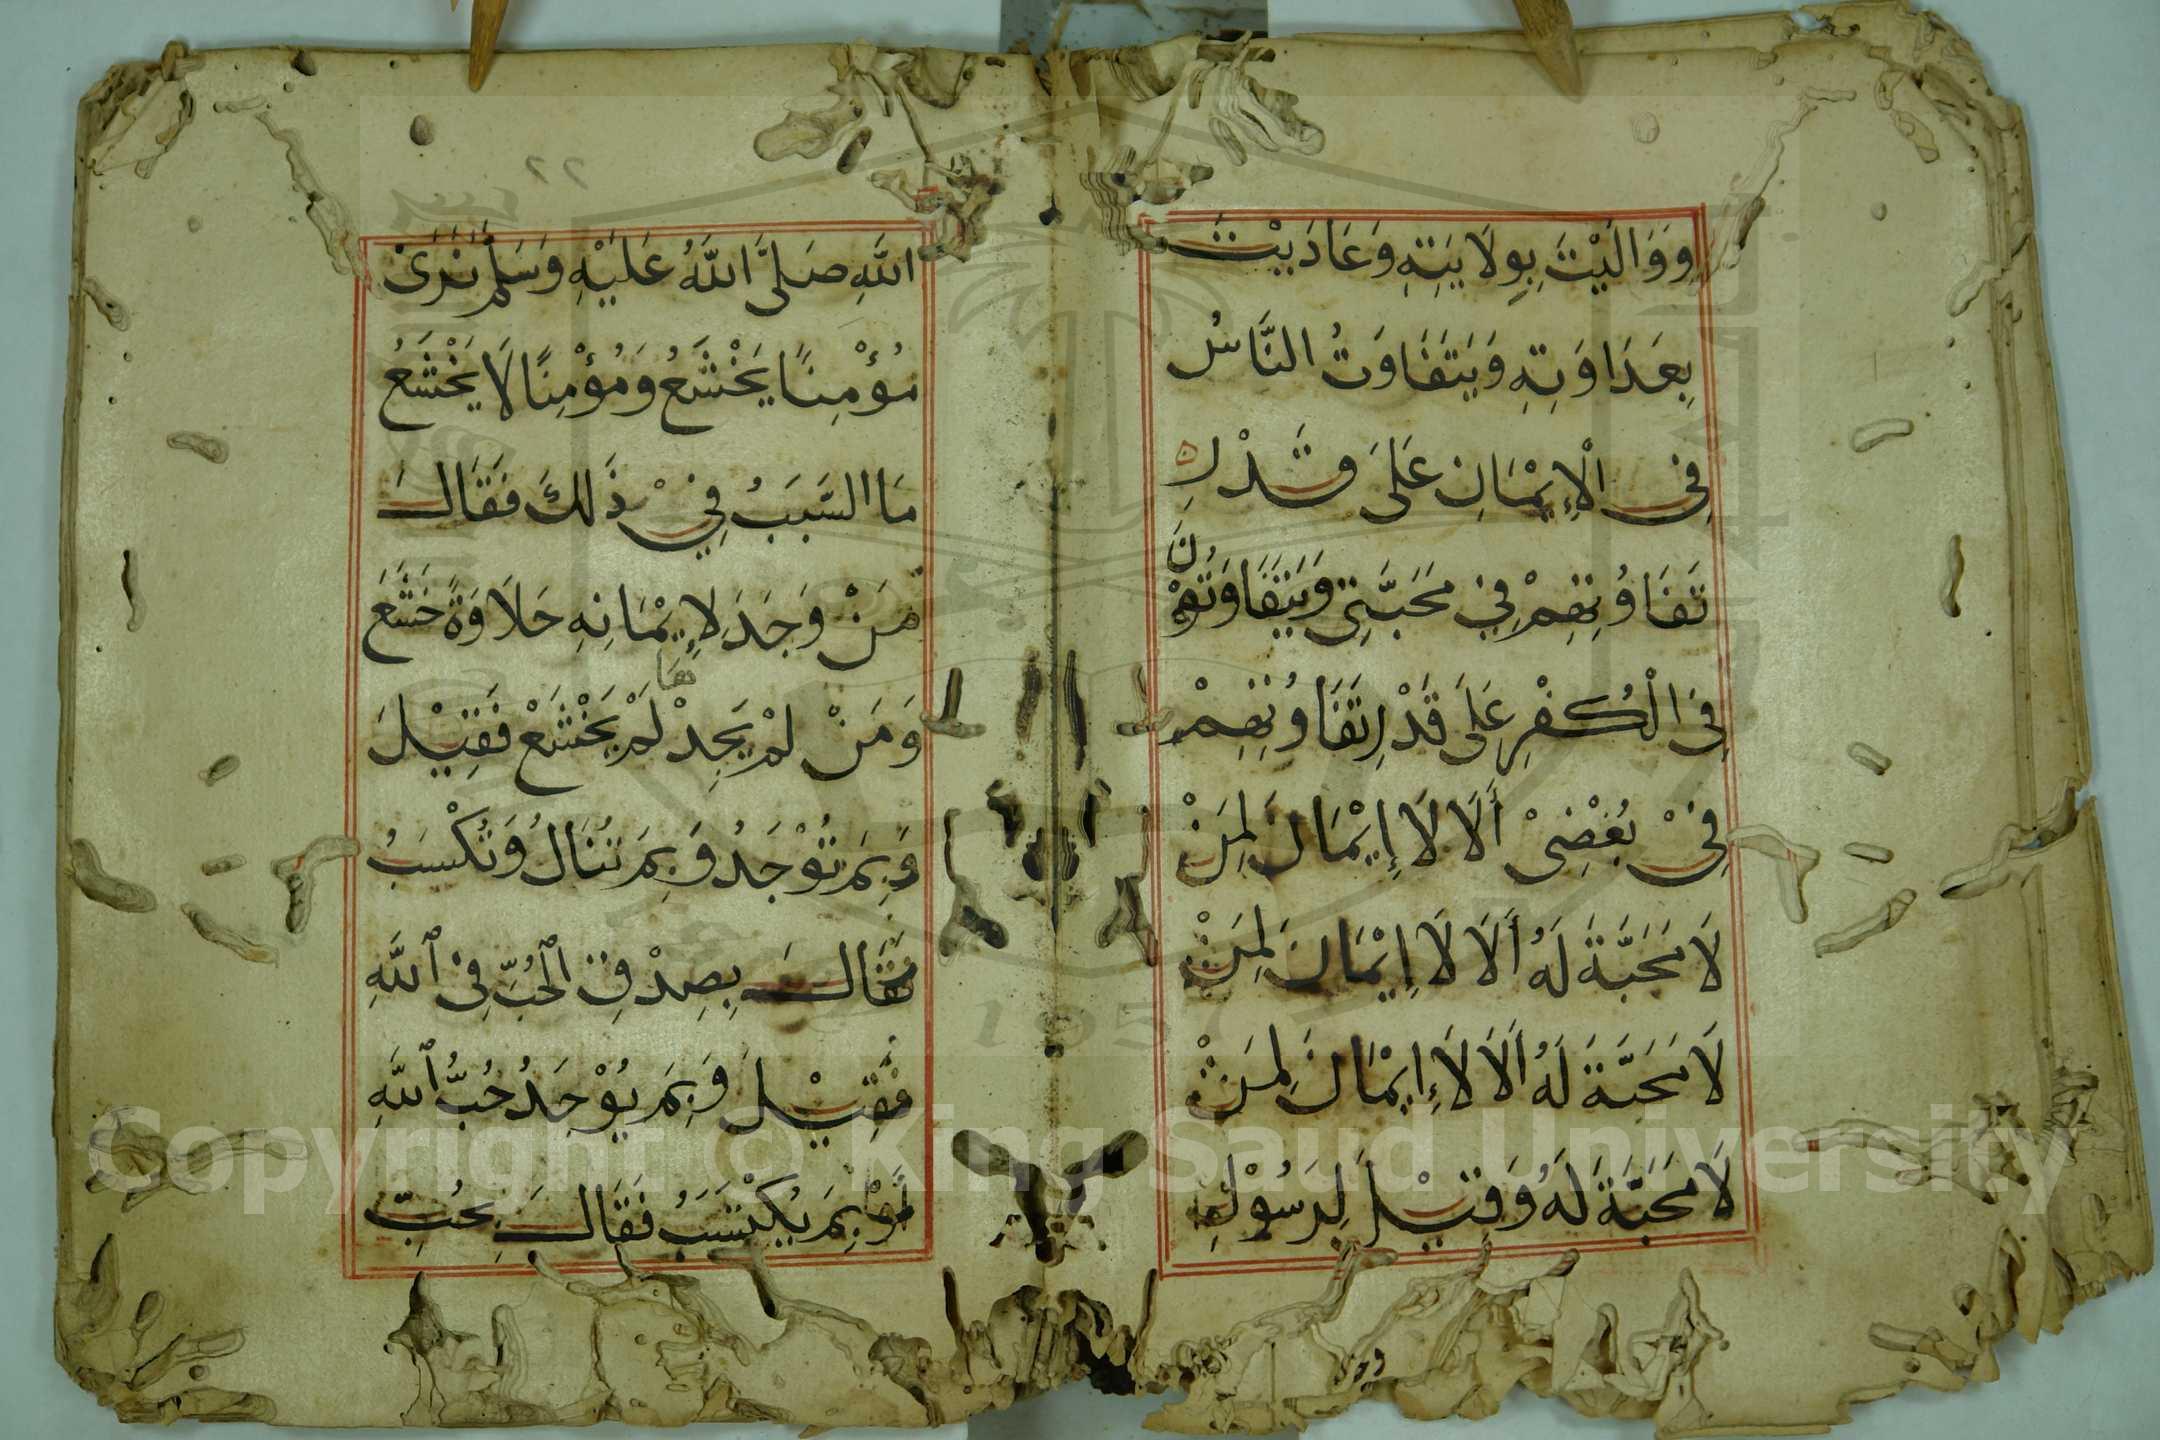 وَوَالَيْتَ بِوِلَايَتِهِ وَعَادَيْتَ
بِعَدَاوَتِهِ وَيَتَفَاوَتُ النَّاسُ
فِي الْاِيْمَانِ عَلَى قَدْرِ
تَفَاوُتِهِمْ فِيْ مَحَبَّتِيْ وَيَتَفَاوَتُوْنَ
فِي الْكُفْرِ عَلَى قَدْرِ تَفَاوُتِهِمْ
فِيْ بُغْضِيْ أَلَا لَا إِيْمَانَ لِمَنْ
لَا مَحَبَّةَ لَهُ أَلَا لَا إِيْمَانَ لِمَنْ
لَا مَحَبَّةَ لَهُ أَلَا لَا إِيْمَانَ لِمَنْ
لَا مَحَبَّةَ لَهُ وَقِيْلَ لِرَسُوْلِ
٢٢
اللَّهِ صَلَّى اللَّهُ عَلَيْهِ وَسَلَّمَ نَرَىْ
مُؤْمِنًا يَخْشَعُ وَمُؤْمِنًا لَا يَخْشَعُ
مَا السَّبَبُ فِيْ ذَلِكَ فَقَالَ
مَنْ وَجَدَ لِإِيْمَانِهِ حَلَاوَةً خَشَعَ
وَمَنْ لَمْ يَجِدْهَا لَمْ يَخْشَعْ فَقِيْلَ
وَبِمَ تُوْجَدُ وَبِمَ تُنَالُ وَتُكْسَبُ
فَقَالَ بِصِدْقِ الْحُبِّ فِي اللَّهِ
فَقِيْلَ وَبِمَ يُوْجَدُ حُبُّ اللَّهِ
أَوْ بِمَ يُكْتَسَبُ فَقَالَ بِحُبِّ
Copyright © King Saud University
1957